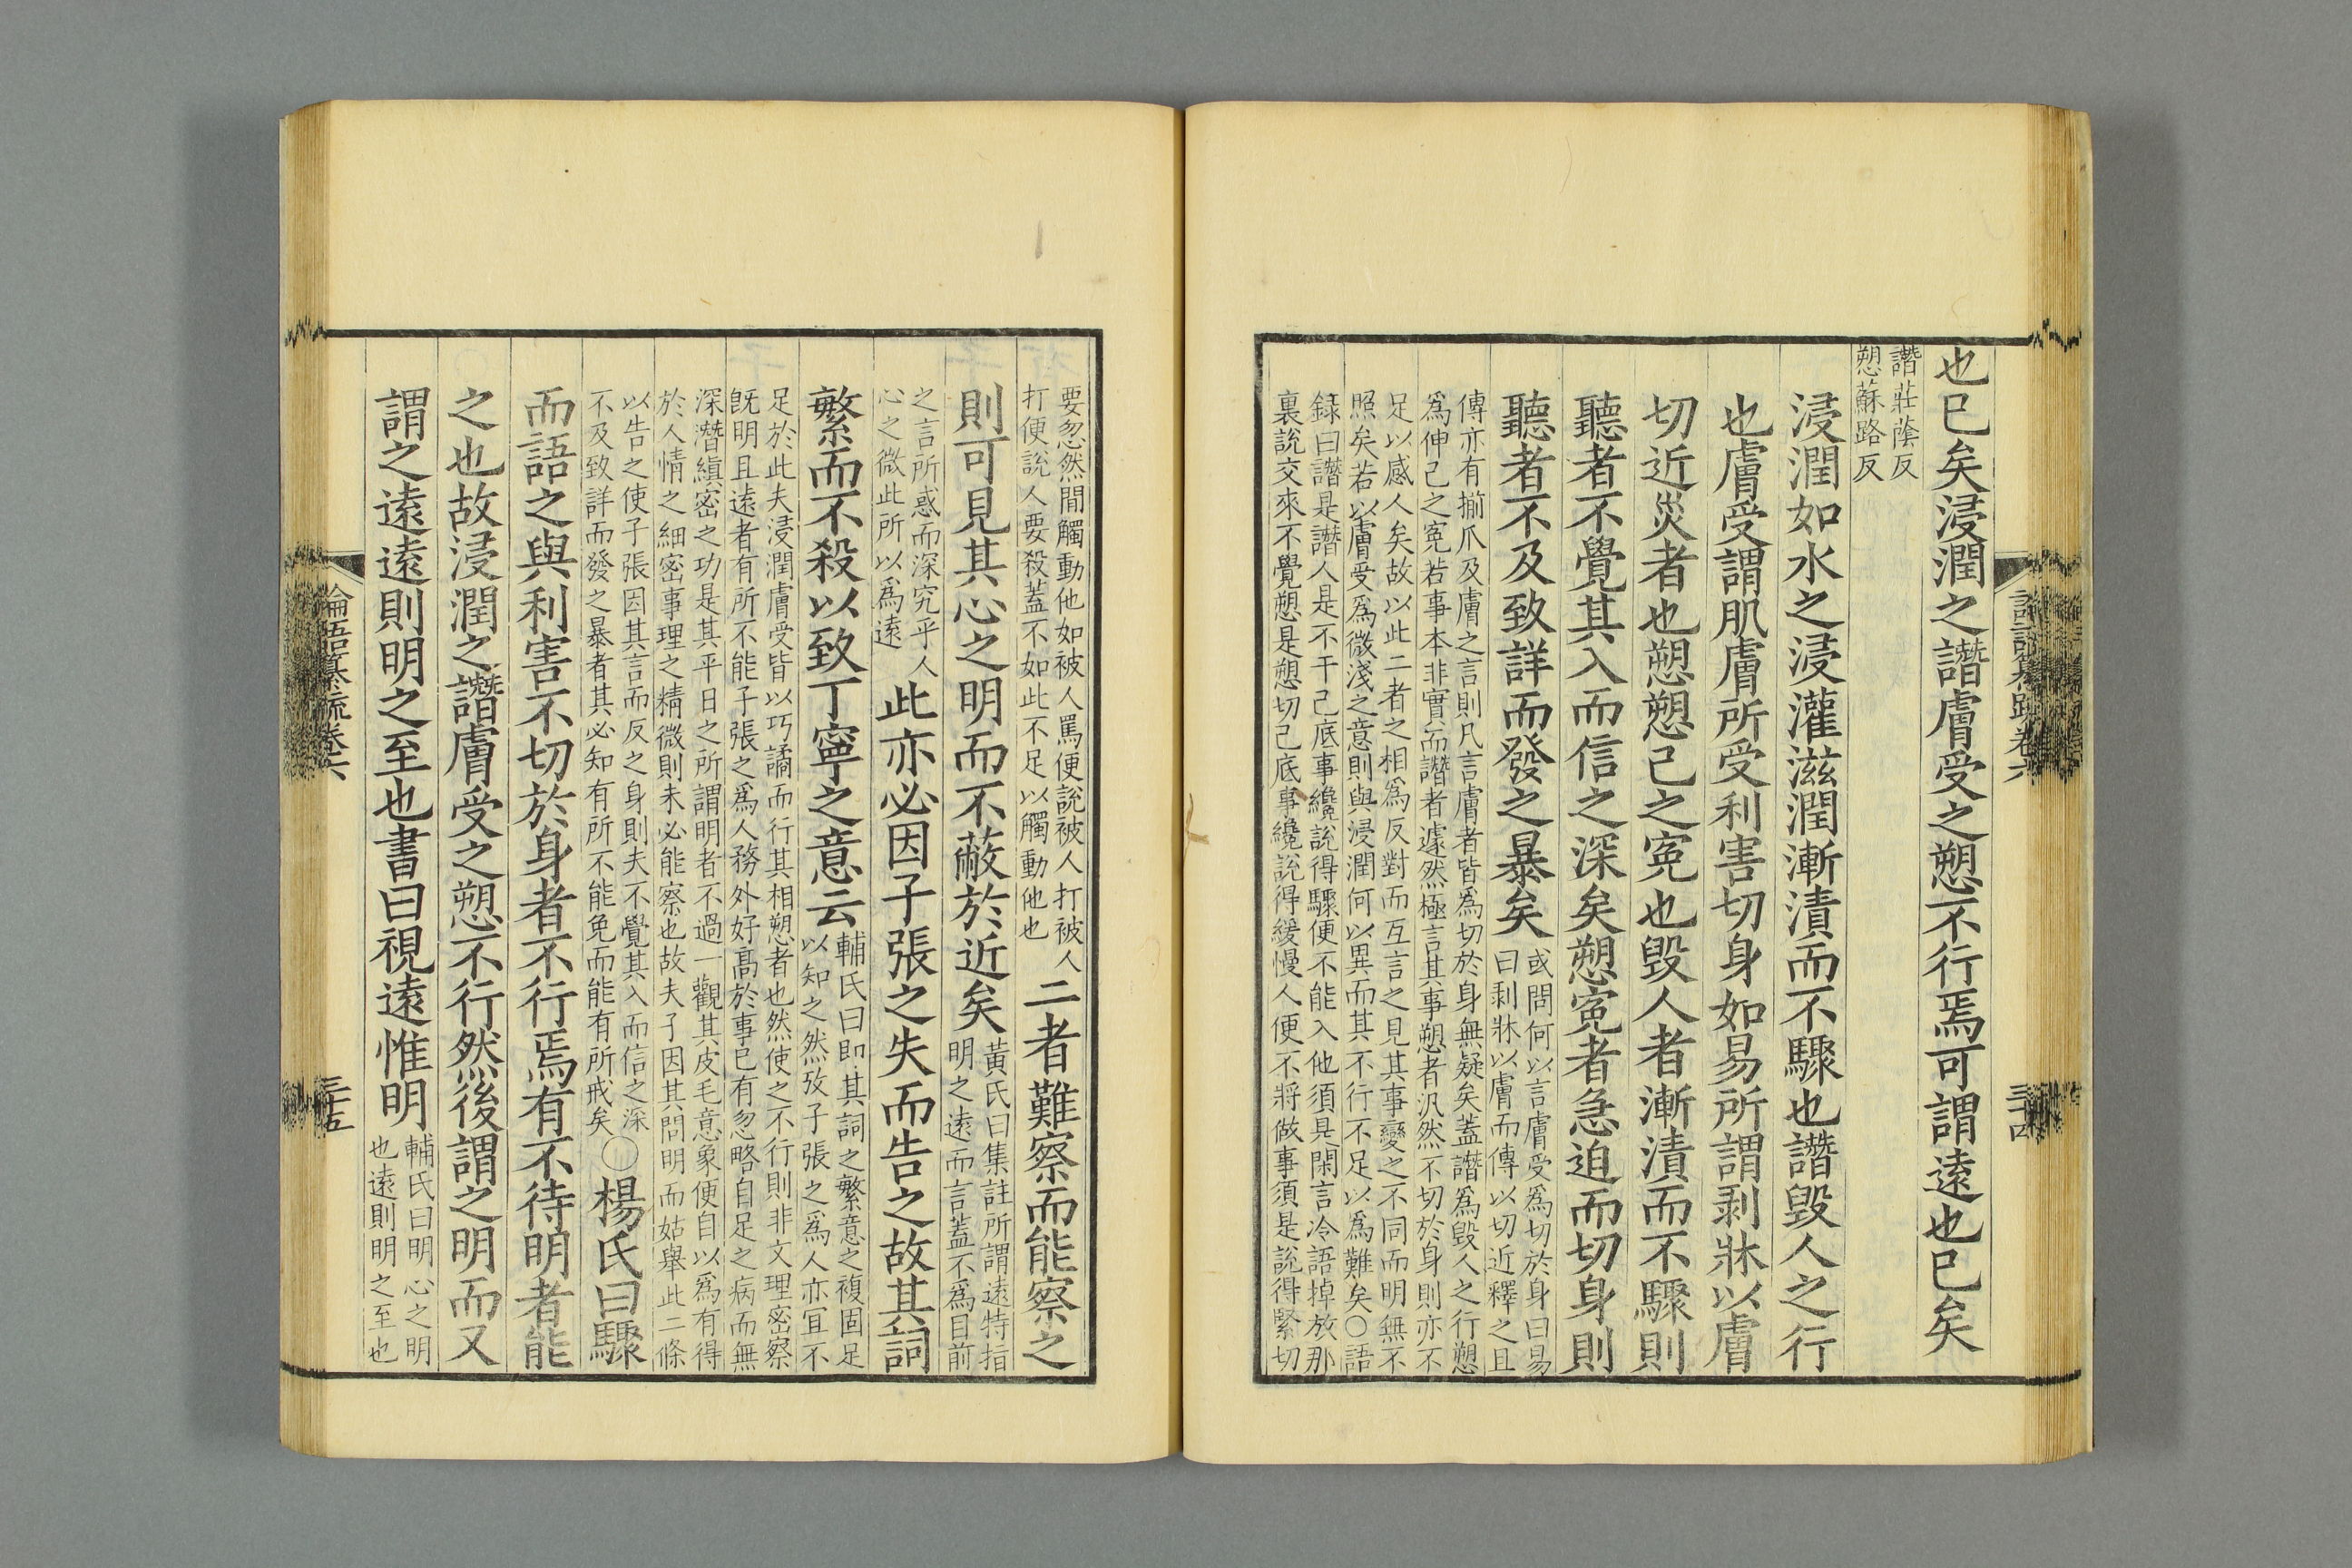 也已矣浸潤之譖膚受之愬不行焉可謂遠也已矣
譖莊蔭反
愬蘇路反
浸潤如水之浸灌滋潤漸漬而不驟也譖毀人之行
也膚受謂肌膚所受利害切身如易所謂剥牀以膚
切近災者也愬愬己之寃也毀人者漸漬而不驟則
聽者不覺其入而信之深矣愬寃者急迫而切身則
聽者不及致詳而發之暴矣
或問何以言膚受爲切於身曰易
曰剥牀以膚而傳以切近釋之且
傳亦有揃爪及膚之言則凡言膚者皆爲切於身無疑矣蓋譖爲毀人之行愬
爲伸己之寃若事本非實而譖者遽然極言其事愬者汎然不切於身則亦不
足以感人矣故以此二者之相爲反對而互言之見其事變之不同而明無不
照矣若以膚受爲微淺之意則與浸潤何以異而其不行不足以爲難矣〇語
錄曰譖是譖人是不干己底事纔說得驟便不能入他須是閑言冷語掉放那
裏說交來不覺愬是愬切己底事纔說得緩慢人便不將做事須是說得緊切
要忽然間觸動他如被人罵便說被人打被人
打便說人要殺蓋不如此不足以觸動他也
二者難察而能察之
則可見其心之明而不蔽於近矣
黃氏曰集註所謂遠特指
明之遠而言蓋不爲目前
之言所惑而深究乎人
心之微此所以爲遠
此亦必因子張之失而告之故其詞
繁而不殺以致丁寧之意云
輔氏曰即其詞之繁意之複固足
以知之然攷子張之爲人亦宜不
足於此夫浸潤膚受皆以巧譎而行其相愬者也然使之不行則非文理密察
旣明且遠者有所不能子張之爲人務外好高於事已有忽略自足之病而無
深潛縝密之功是其平日之所謂明者不過一觀其皮毛意象便自以爲有得
於人情之細密事理之精微則未必能察也故夫子因其問明而姑舉此二條
以告之使子張因其言而反之身則夫不覺其入而信之深
不及致詳而發之暴者其必知有所不能免而能有所戒矣
〇楊氏曰驟
而語之與利害不切於身者不行焉有不待明者能
之也故浸潤之譖膚受之愬不行然後謂之明而又
謂之遠遠則明之至也書曰視遠惟明
輔氏曰明心之明
也遠則明之至也
論語纂疏卷六
三十五
三十四